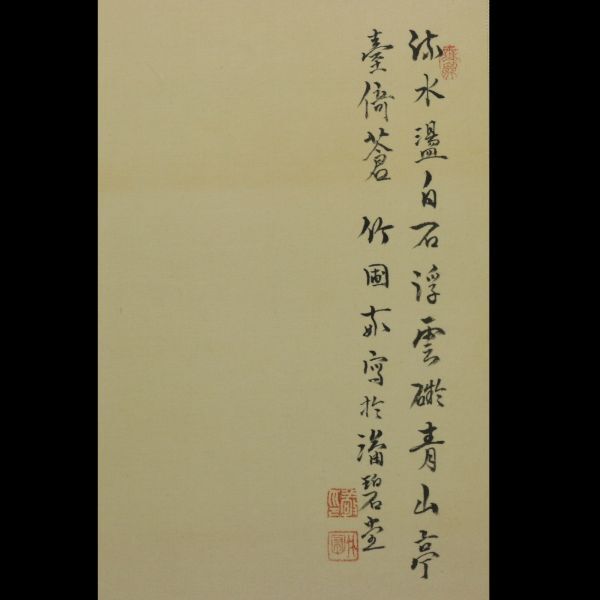 流水盪白石浮雲礙青山亭
臺倚蒼 竹圃敬寫於潘碧堂